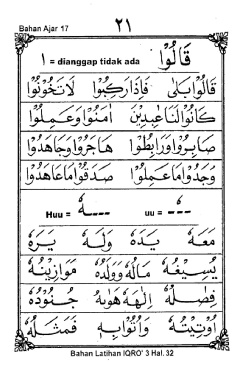 Bahan Ajar 17
٢١
قَالُوْا
ا = dianggap tidak ada
قَالُوْابَلٰى فَاِذَارَكِبُوْا لَاتَخُوْنُوْا
كَانُوْالَنَاعٰبِدِيْنَ اٰمَنُوْاوَعَمِلُوْا
صَابِرُوْاوَرَابِطُوْا هَاجَرُوْاوَجَاهَدُوْا
وَجَدُوْامَاعَمِلُوْا صَدَقُوْامَاعَاهَدُوْا
Huu = ـهٗ uu = ـٗ
مَعَهٗ يَدَهٗ وَلَهٗ يَرَهٗ
يُسِيْغُهٗ مَالُهٗ وَوَلَدُهٗ مَوَازِيْنُهٗ
فِصٰلُهٗ اِلٰهَهٗ هَوٰىهُ جُنُوْدُهٗ
اُوْتِيْتُهٗ وَاُتُوْابِهٖ فَمَثَلُهٗ
Bahan Latihan IQRO' 3 Hal. 32